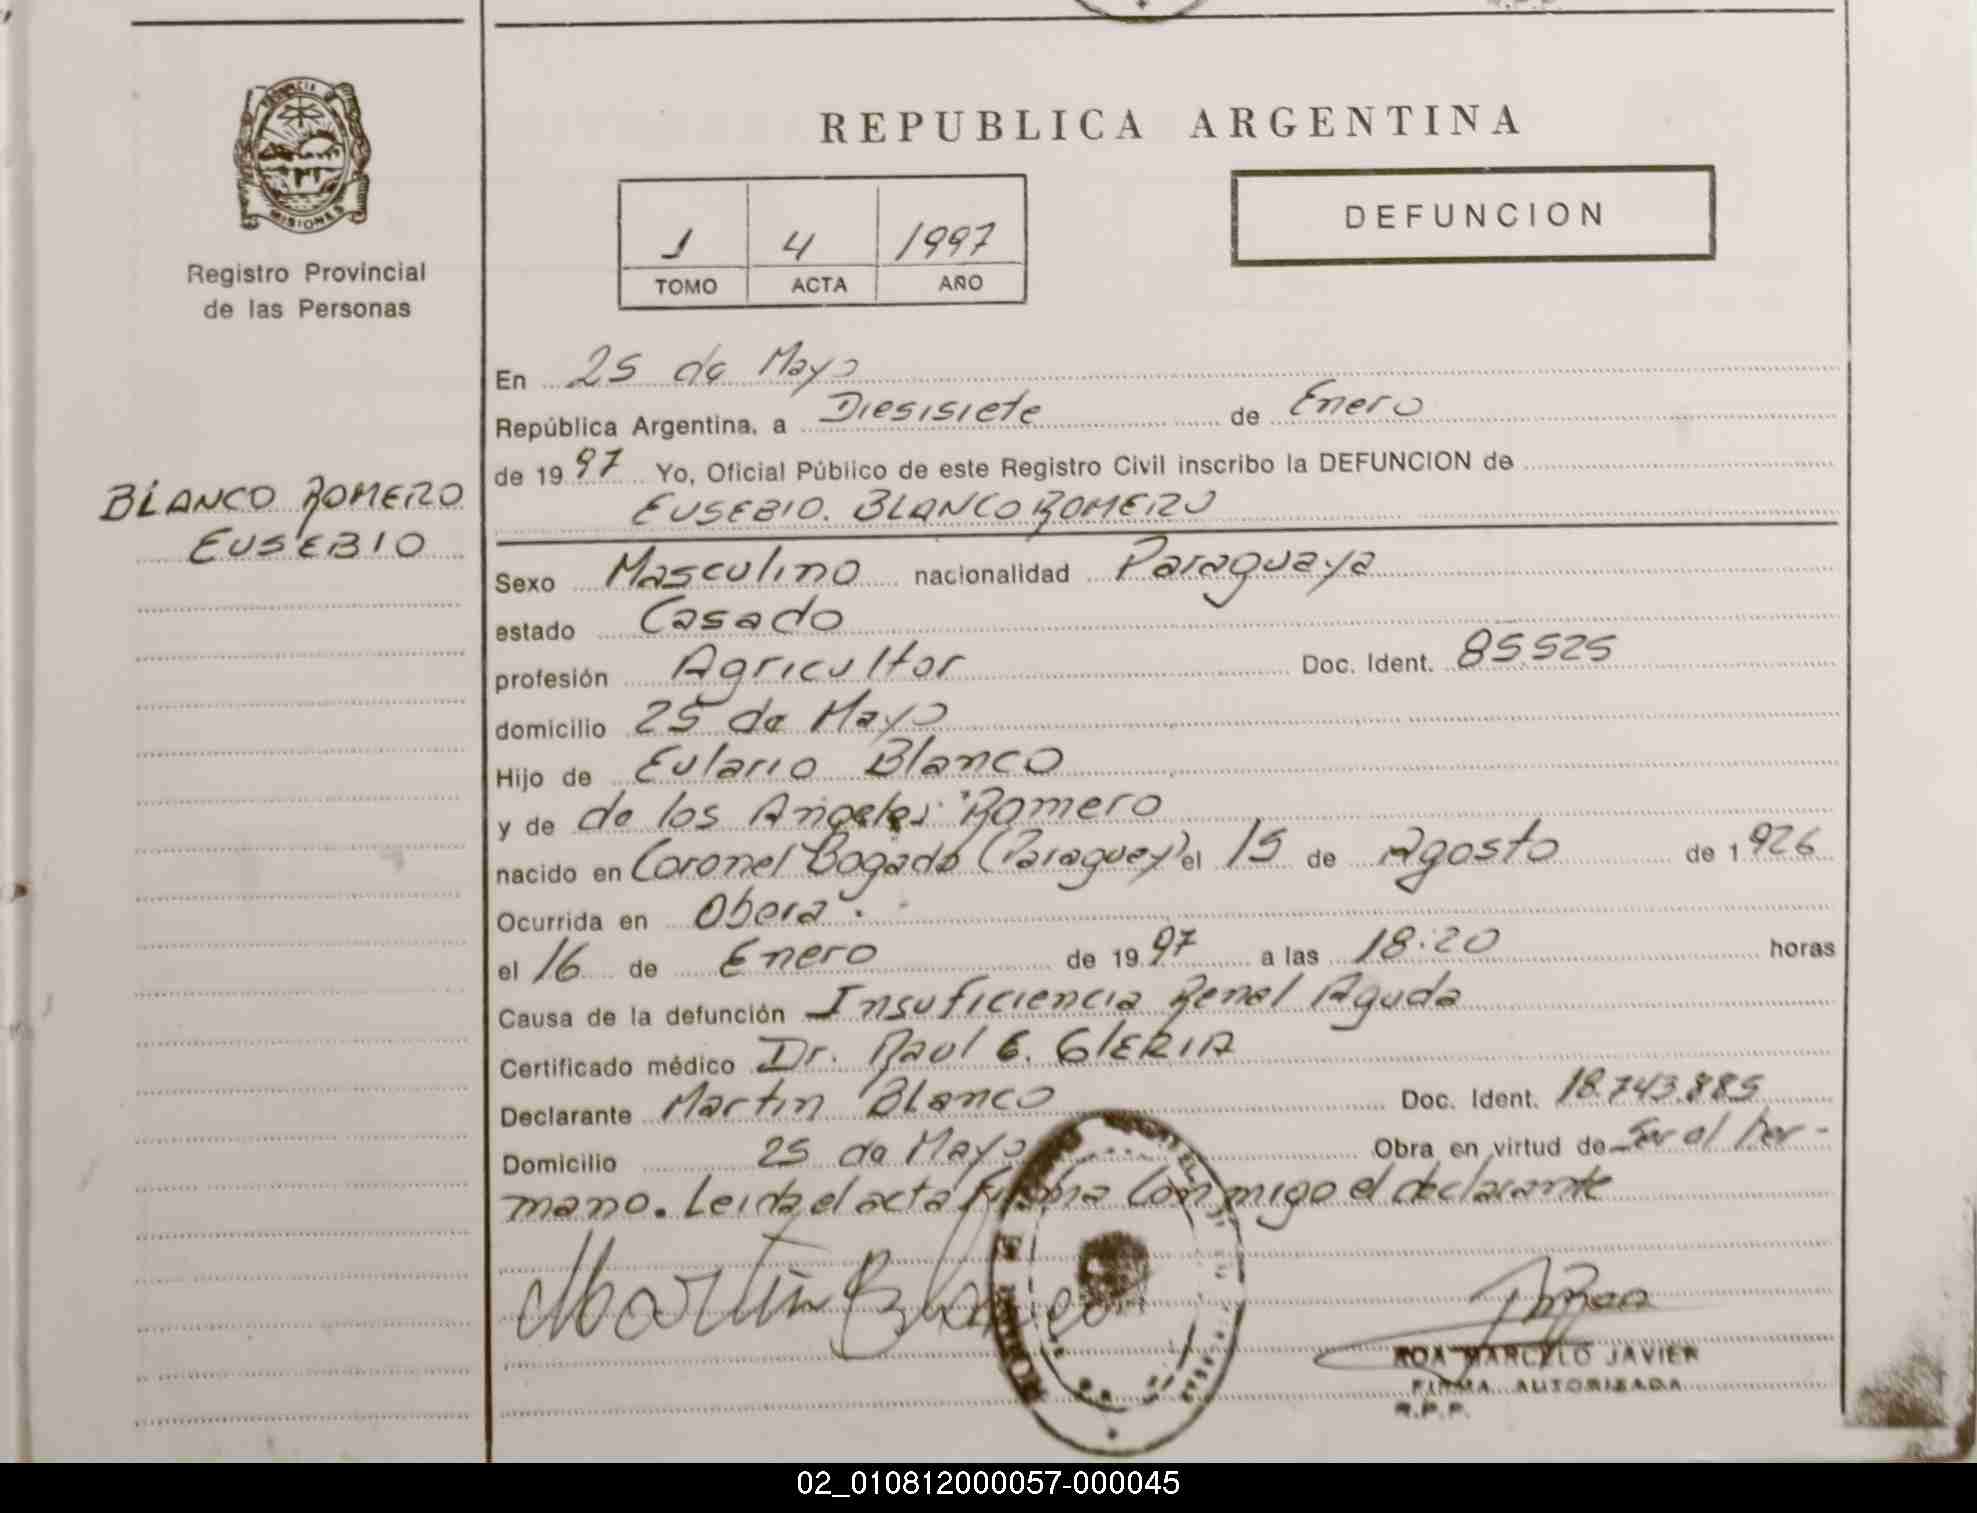 PROVINCIA D
MISIONES
Registro Provincial
de las Personas
BLANCO ROMERO
EUSEBIO
REPUBLICA ARGENTINA
1 4 1997
TOMO ACTA AÑO
DEFUNCION
En 25 de Mayo
República Argentina, a Diesisiete de Enero
de 19 97 Yo, Oficial Público de este Registro Civil inscribo la DEFUNCION de
EUSEBIO. BLANCO ROMERO
Sexo Masculino nacionalidad Paraguaya
estado Casado
profesión Agricultor Doc. Ident. 85.525
domicilio 25 de Mayo
Hijo de Eulario Blanco
y de de los Angeles Romero
nacido en Coronel Bogado (Paraguay) el 15 de Agosto de 1926
Ocurrida en Obera.
el 16 de Enero de 19 97 a las 18:20 horas
Causa de la defunción Insuficiencia Renal Aguda
Certificado médico Dr. Raul E. GLERIA
Declarante Martin Blanco Doc. Ident. 18.743.885
Domicilio 25 de Mayo Obra en virtud de Ser el her-
mano. Leida el acta firma Conmigo el declarante
Martin Blanco
ROA MARCELO JAVIER
FIRMA AUTORIZADA
R.P.P.
02_010812000057-000045